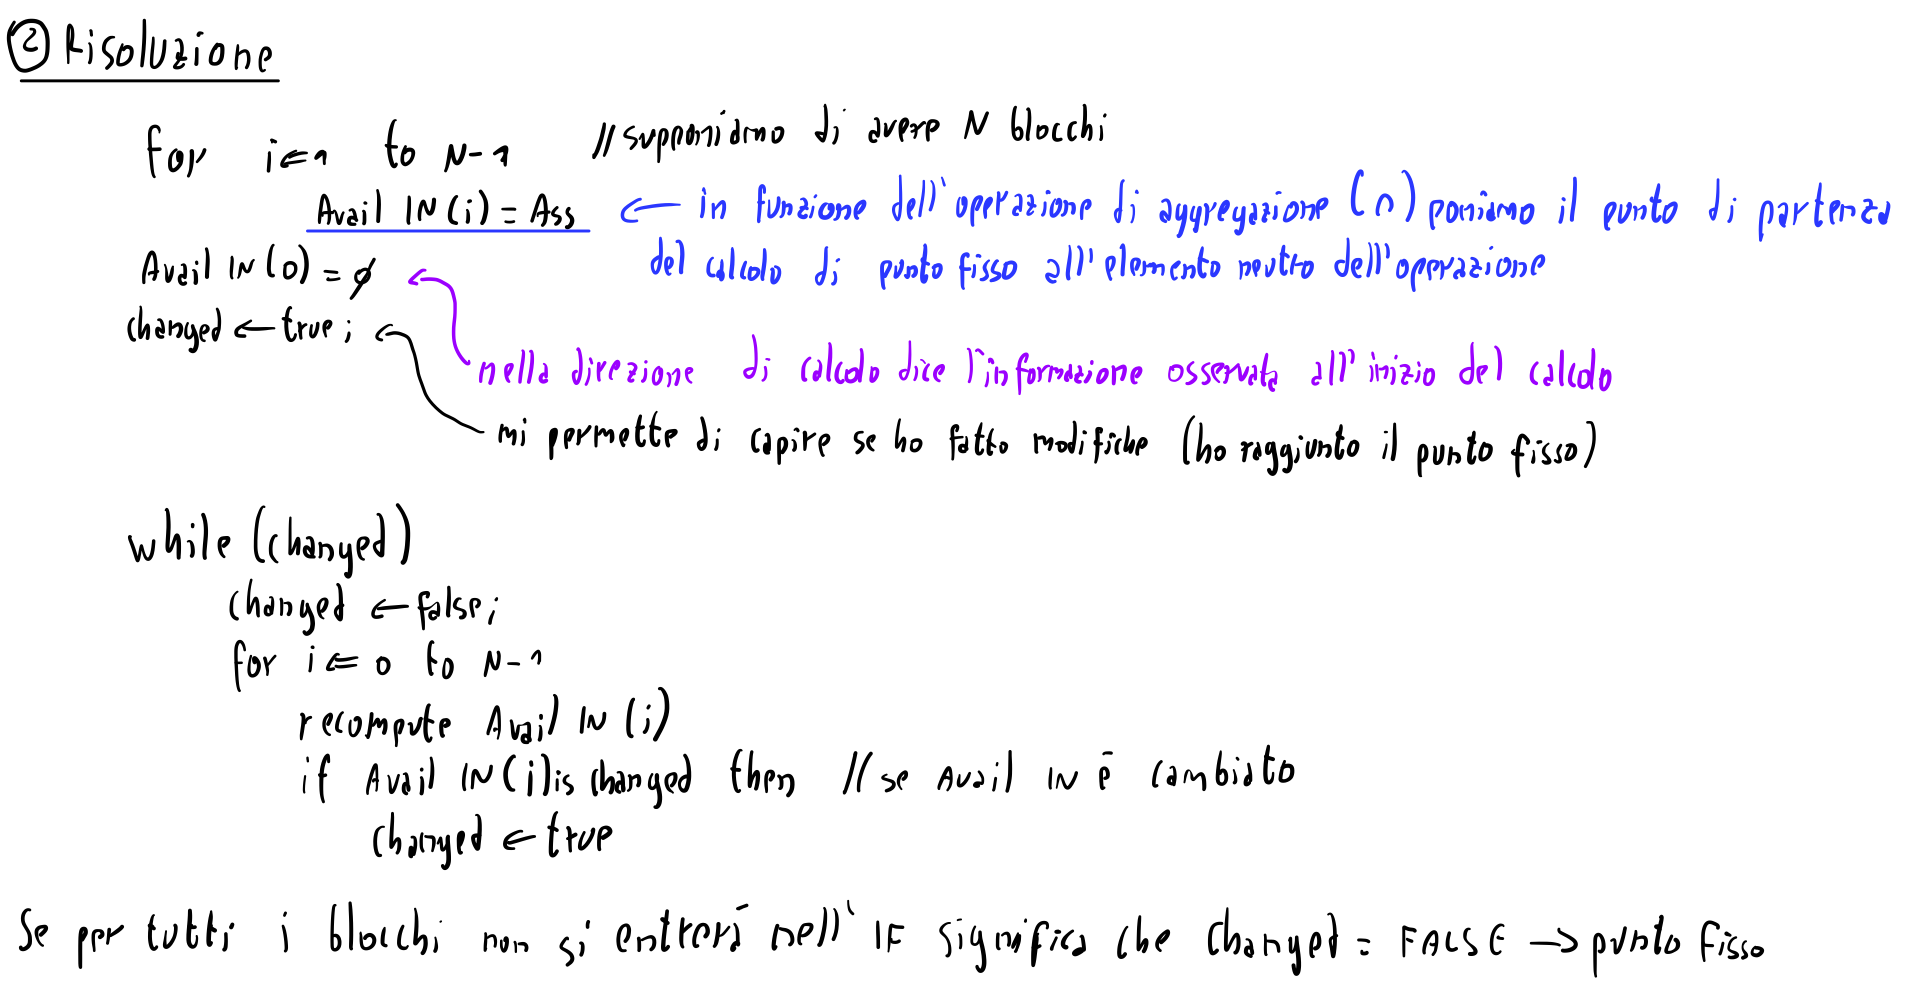 ② Risoluzione
for i ⇐ 1 to N-1 // supponiamo di avere N blocchi
Avail IN(i) = Ass ← in funzione dell'operazione di aggregazione (∩) poniamo il punto di partenza
del calcolo di punto fisso all'elemento neutro dell'operazione
Avail IN(0) = ∅
changed ← true;
nella direzione di calcolo dice l'informazione osservata all'inizio del calcolo
mi permette di capire se ho fatto modifiche (ho raggiunto il punto fisso)
while (changed)
changed ← false;
for i ⇐ 0 to N-1
recompute Avail IN (i)
if Avail IN(i) is changed then // se Avail IN è cambiato
changed ← true
Se per tutti i blocchi non si entrerà nell' IF significa che changed = FALSE → punto fisso